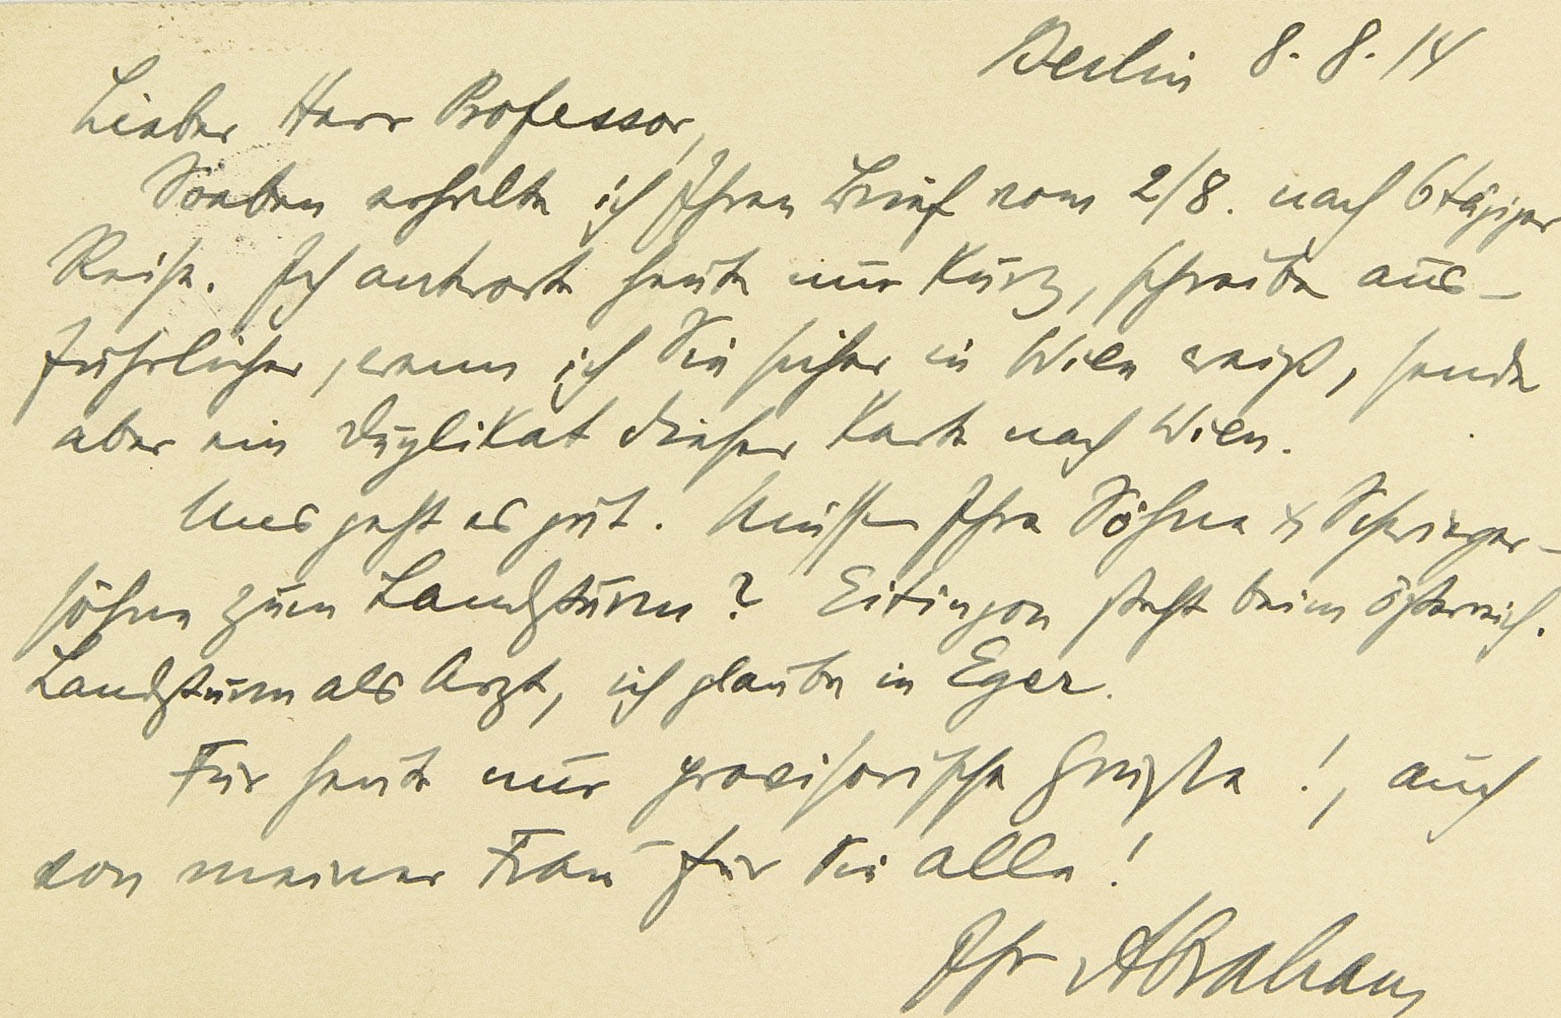 Berlin 8. 8. 14
Lieber Herr Professor,
Soeben erhalte ich Ihren Brief vom 2/8. nach 6tägiger
Reise. Ich antworte heute nur kurz, schreibe aus-
führlicher, wenn ich Sie sicher in Wien weiß, sende
aber ein Duplikat dieser Karte nach Wien.
Uns geht es gut. Müssen Ihre Söhne & Schwieger-
söhne zum Landsturm? Eitingon steht beim österreich.
Landsturm als Arzt, ich glaube in Eger.
Für heute nur provisorische Grüße!, auch
von meiner Frau für Sie alle!
Ihr Abraham